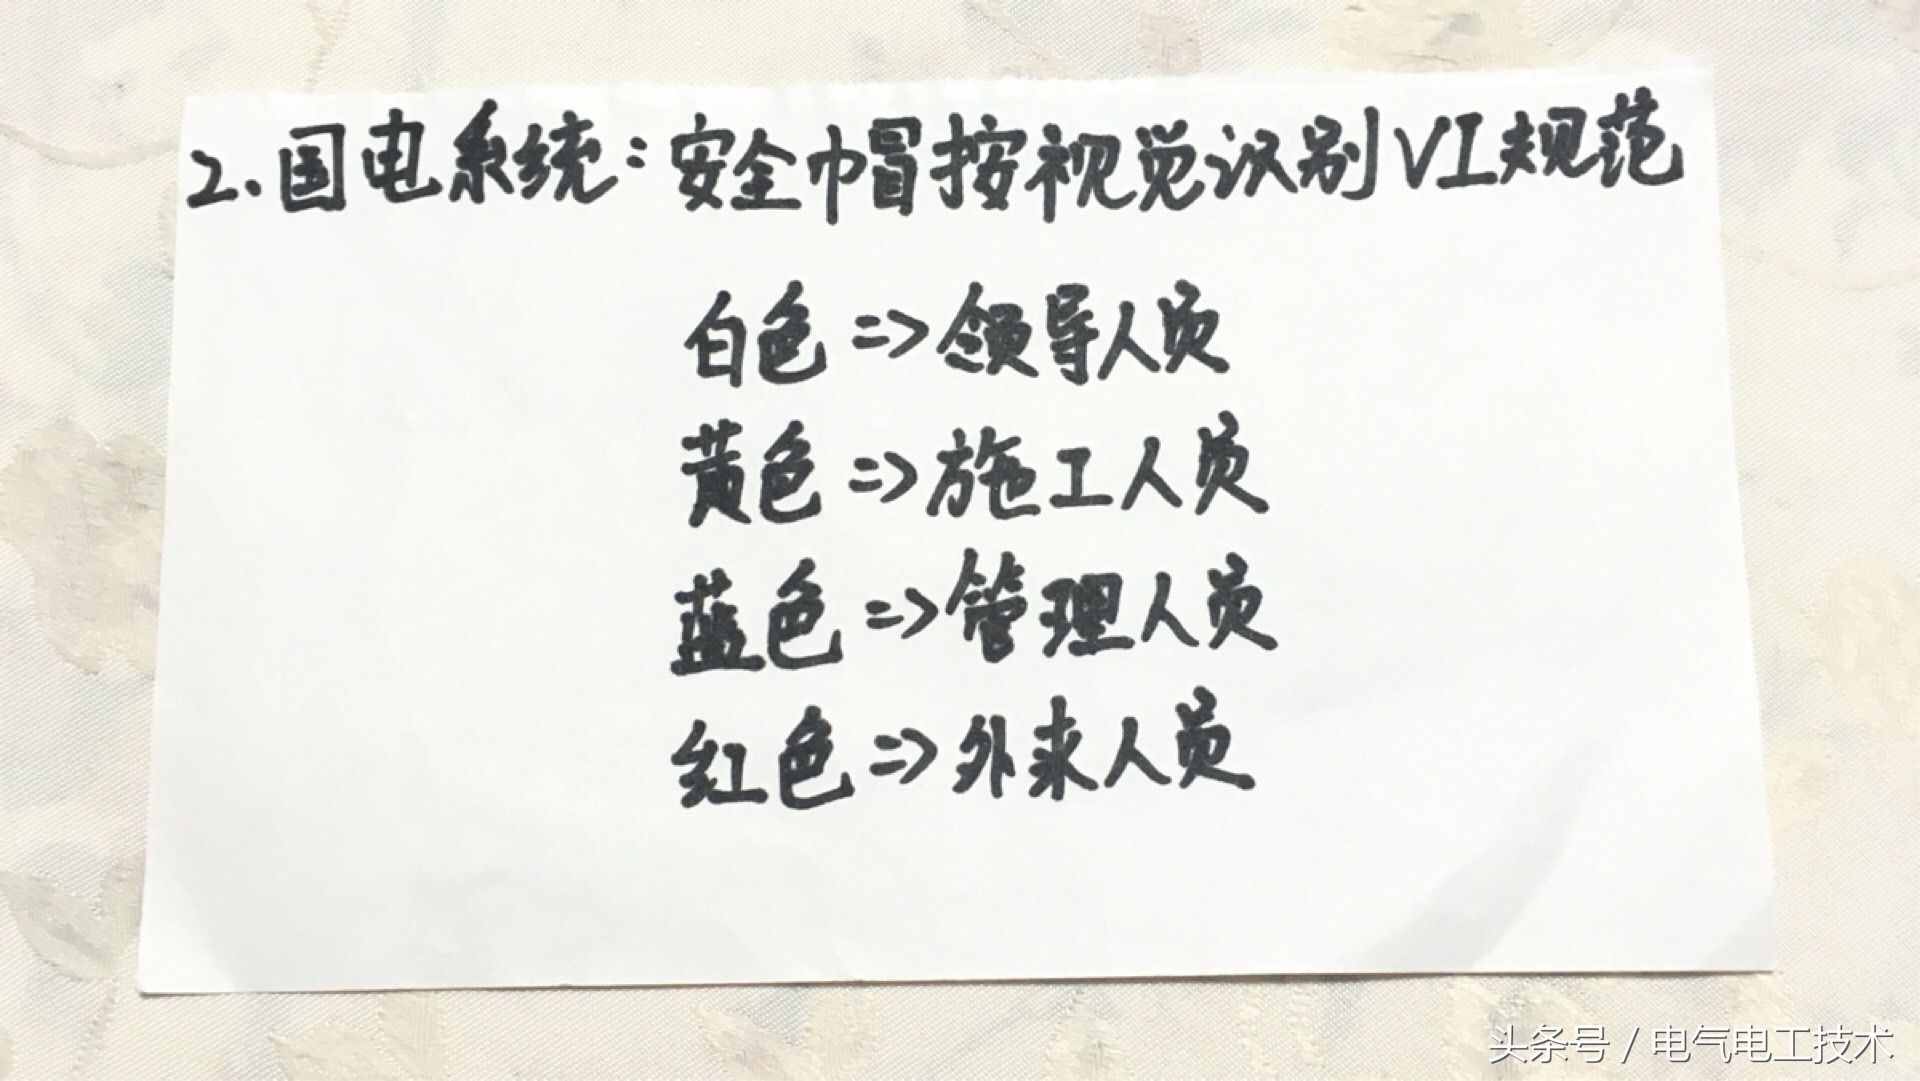 2.国电系统:安全帽按视觉识别VI规范
白色=>领导人员
黄色=>施工人员
蓝色=>管理人员
红色=>外来人员
头条号 / 电气电工技术